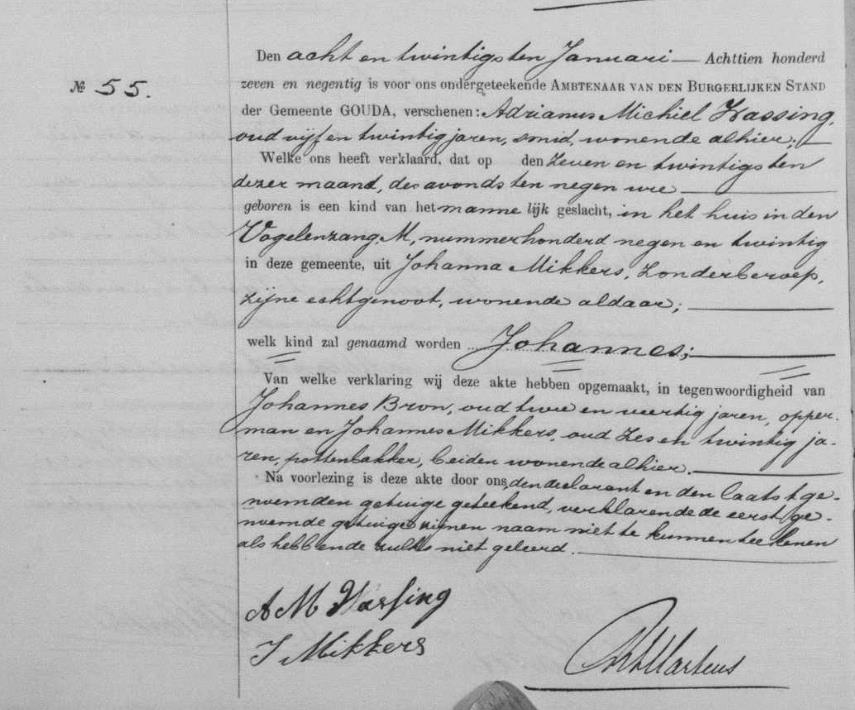 № 55.
Den acht en twintigsten Januari Achttien honderd
zeven en negentig is voor ons ondergeteekende AMBTENAAR VAN DEN BURGERLIJKEN STAND
der Gemeente GOUDA, verschenen: Adrianus Michiel Hassing,
oud vijf en twintig jaren, smid, wonende alhier;
Welke ons heeft verklaard, dat op den zeven en twintigsten
dezer maand, des avonds ten negen ure
geboren is een kind van het mannelijk geslacht, in het huis in den
Vogelenzang M, nummer honderd negen en twintig
in deze gemeente, uit Johanna Mikkers, zonder beroep,
zijne echtgenoot, wonende aldaar;
welk kind zal genaamd worden Johannes;
Van welke verklaring wij deze akte hebben opgemaakt, in tegenwoordigheid van
Johannes Bron, oud twee en veertig jaren, opper-
man en Johannes Mikkers, oud zes en twintig ja-
ren, pottenbakker, beiden wonende alhier.
Na voorlezing is deze akte door ons, den declarant en den laatstge-
noemden getuige geteekend, verklarende de eerstge-
noemde getuige zijnen naam niet te kunnen teekenen
als hebbende zulks niet geleerd.
A M Hassing
J Mikkers
Martens